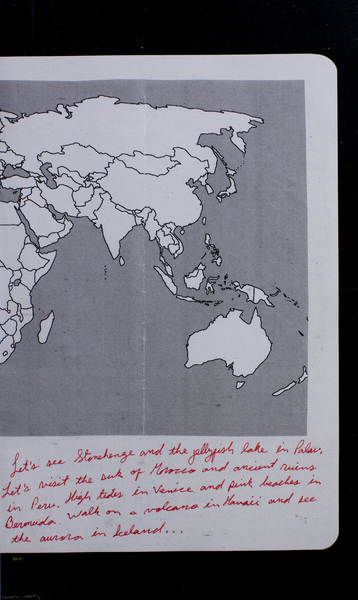 Let's see Stonehenge and the jellyfish lake in Palau.
Let's visit the suk of Morocco and ancient ruins
in Peru. High tides in Venice and pink beaches in
Bermuda. Walk on a volcano in Hawaii and see
the aurora in Iceland...